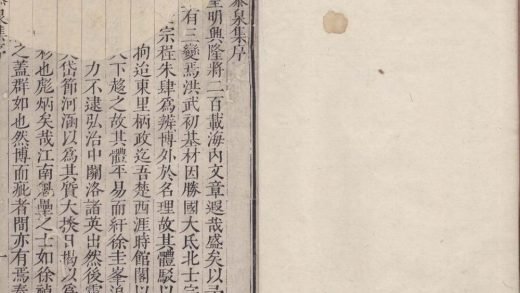 泰泉集序
皇明興隆將二百載海内文章遐哉盛矣以
有三變焉洪武初基材因勝國大氐北士宗
宗程朱肆爲辨博外於名理故其體駁以
拘迫東里柄政迄吾楚西涯時館閣以
天下趍之故其體平易而紆徐圭峯追
力不逮弘治中關洛諸英出然後雷
岱節河涵以為其質大日揭以為
彩也彪炳矣哉江南壘之士如徐禎
之蓋群如也然博而疵者間亦有焉泰
泉集序 一